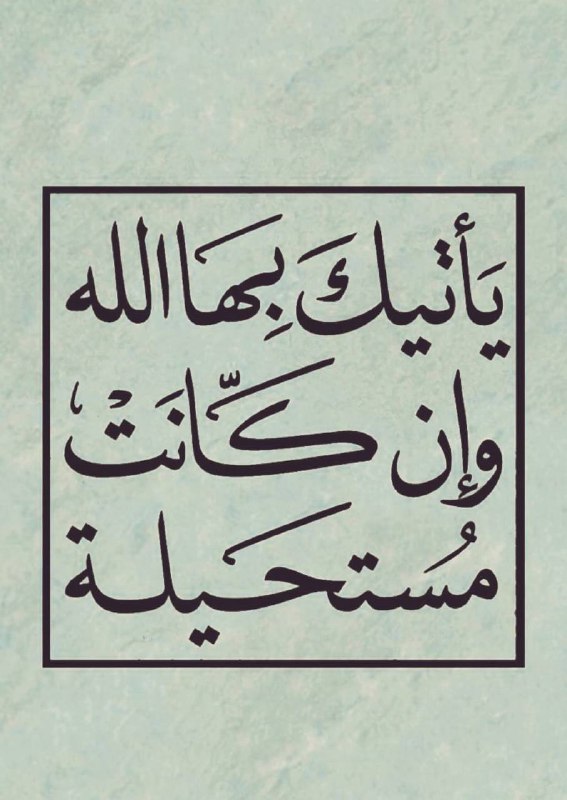 يَأتيكَ بِهَا الله
وإن كَّانَتْ
مُسَتحيلة